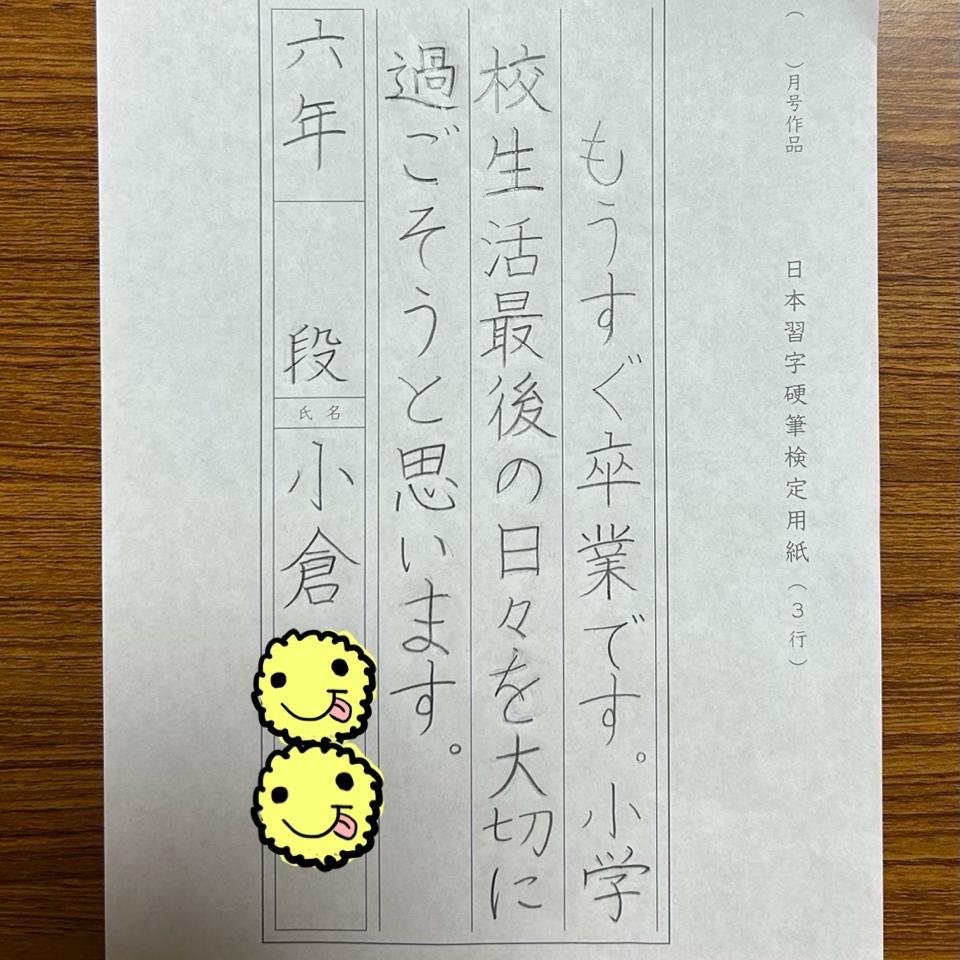 （　）月号作品　日本習字硬筆検定用紙（３行）
もうすぐ卒業です。小学
校生活最後の日々を大切に
過ごそうと思います。
六年　段　氏名　小倉